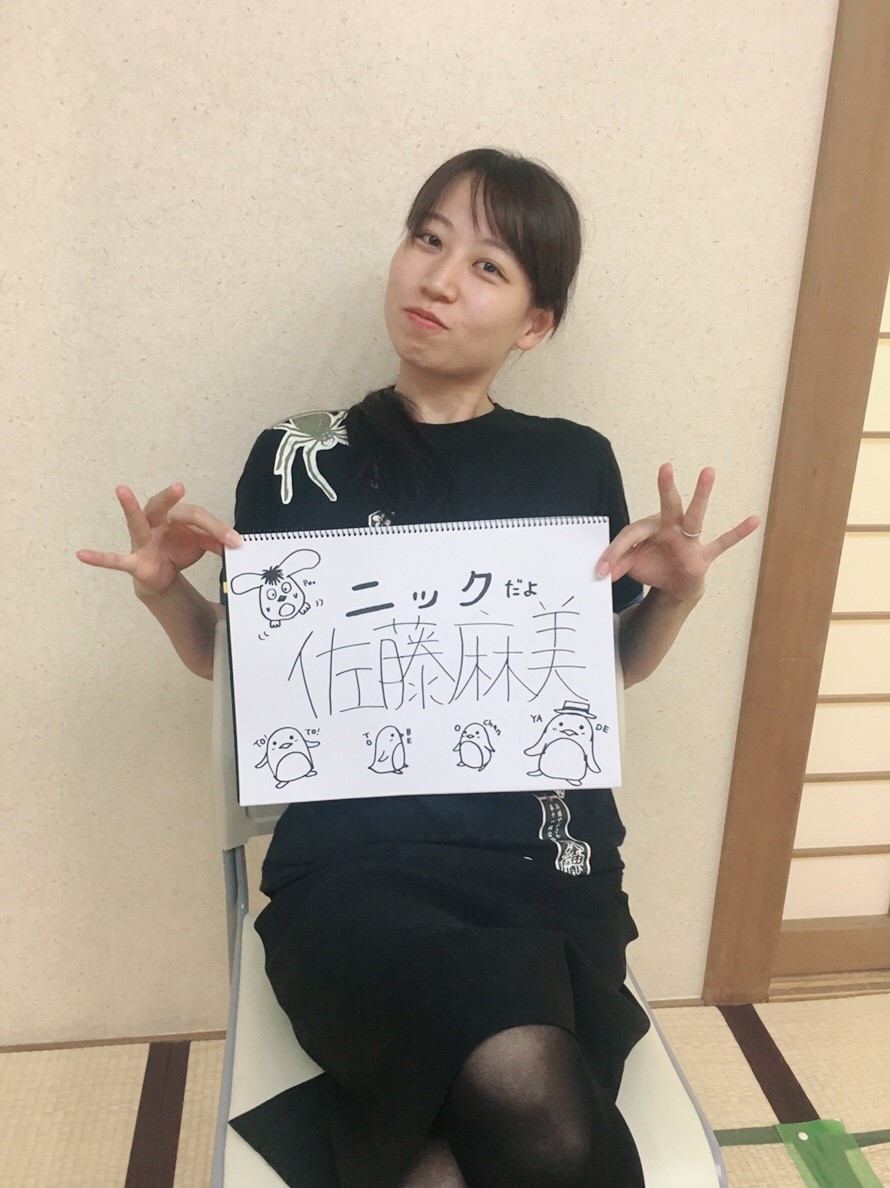 Pao
ニックだよ
佐藤麻美
TO! TO!
TO BE
O chan
YA DE